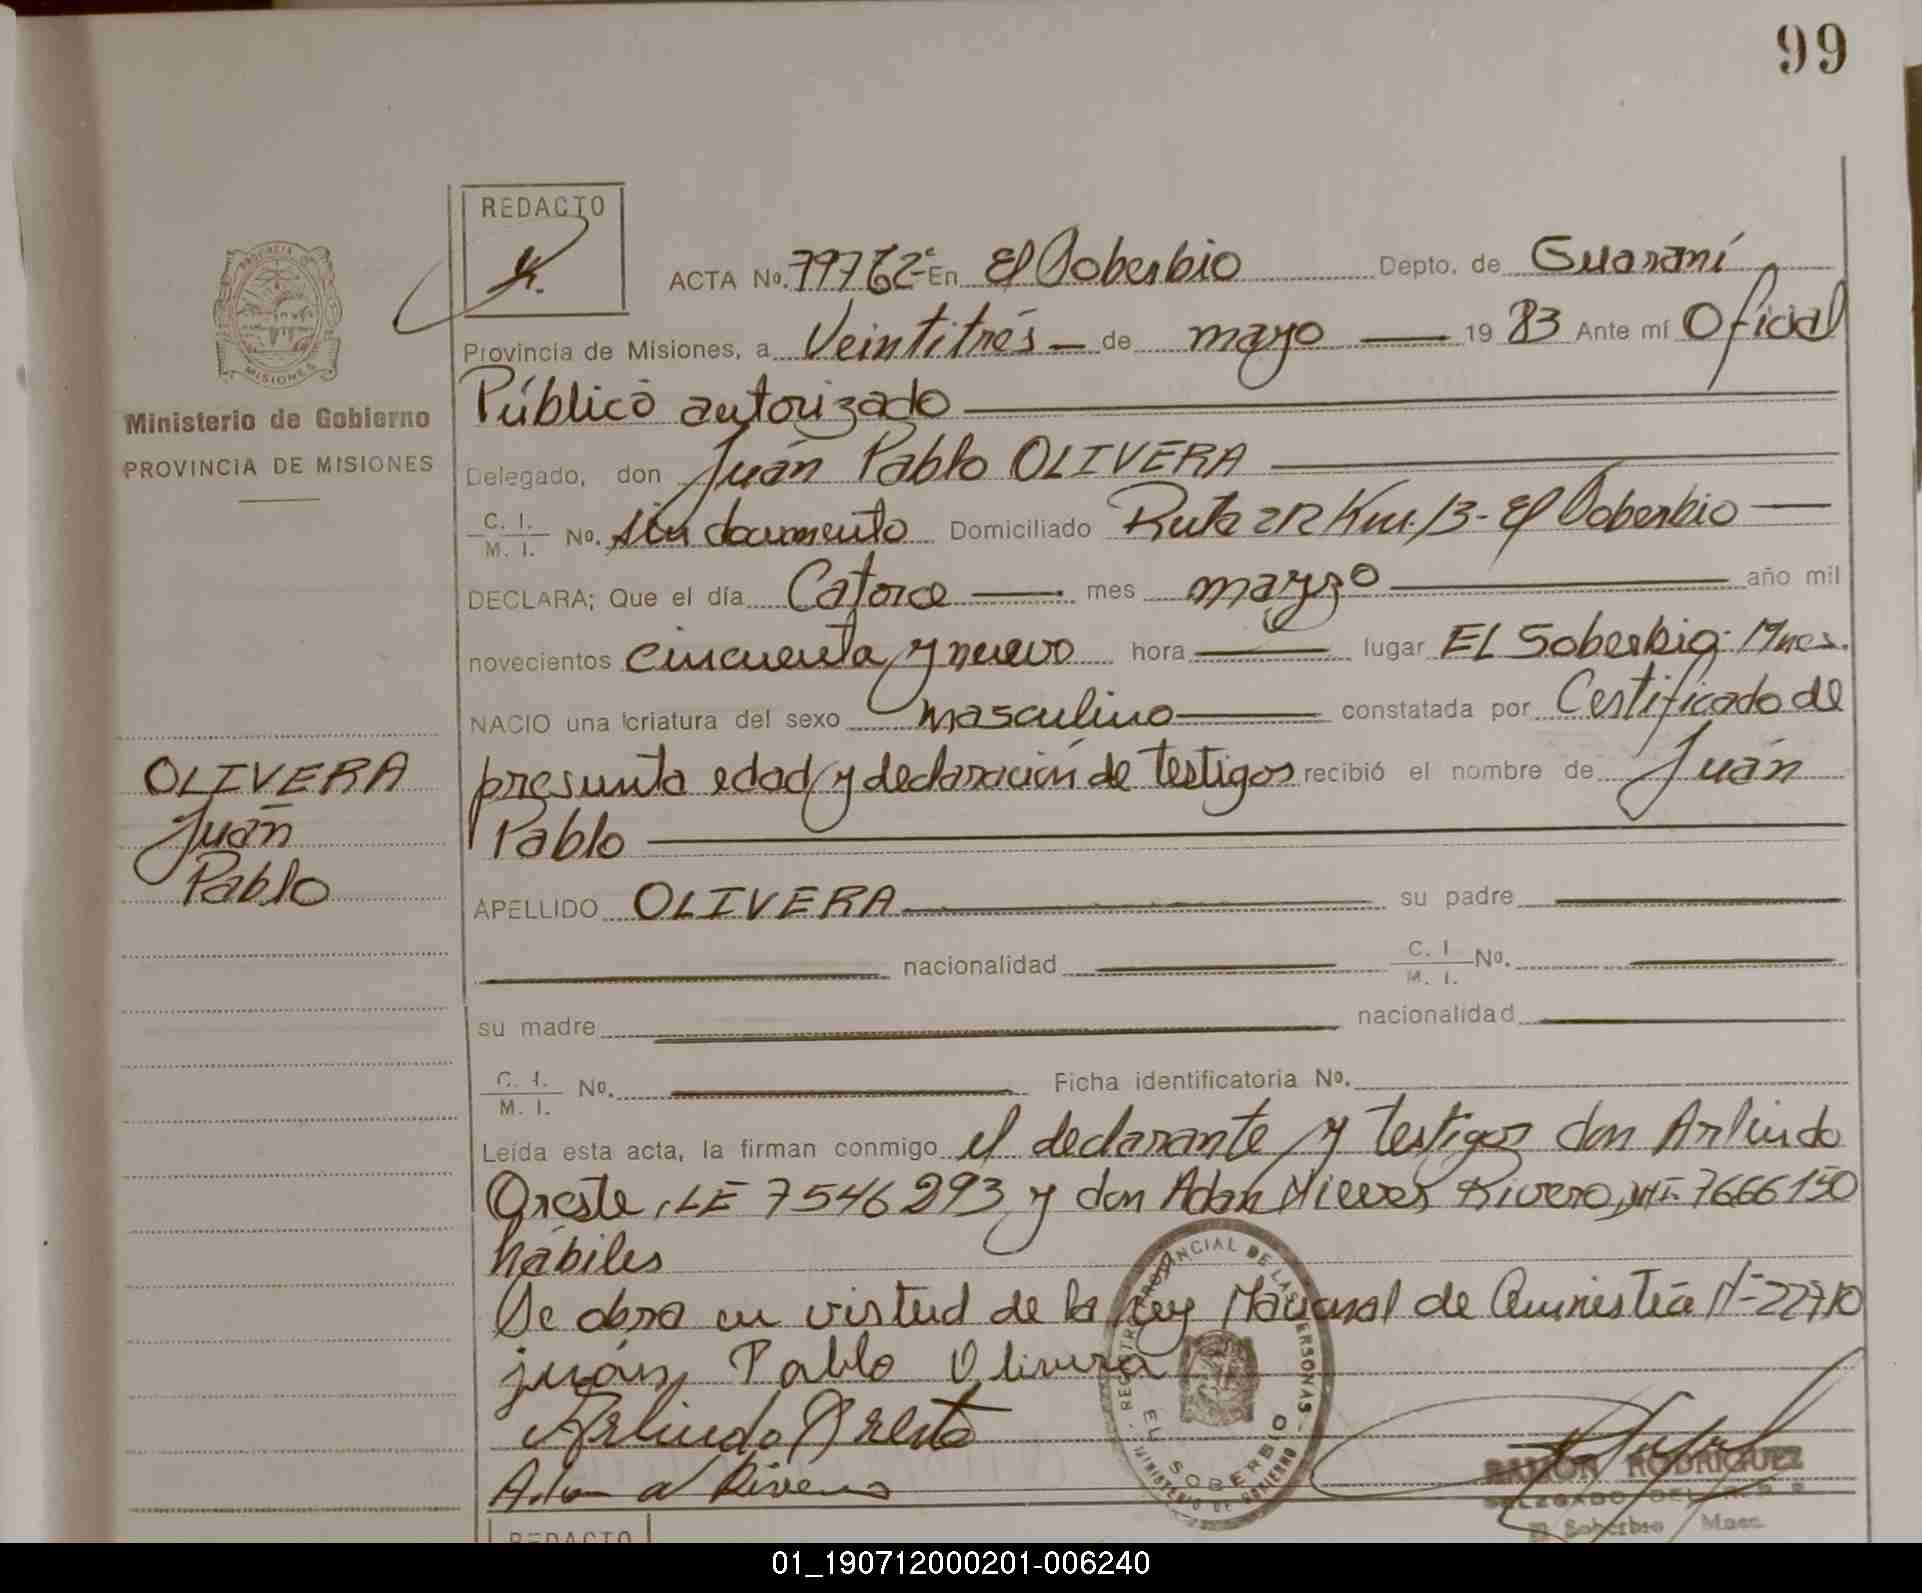 99
REDACTO
ACTA No. 79762 En El Soberbio Depto. de Guaraní
Provincia de Misiones, a Veintitrés de mayo 19 83 Ante mí Oficial
Público autorizado
Ministerio de Gobierno
PROVINCIA DE MISIONES
Delegado, don Juán Pablo OLIVERA
C. I. M. I. No. sin documento Domiciliado Ruta 212 Km. 13 - El Soberbio
DECLARA; Que el día Catorce mes marzo año mil
novecientos cincuenta y nuevo hora lugar EL Soberbio: Mnes.
NACIO una criatura del sexo masculino constatada por Certificado de
presunta edad y declaración de testigos recibió el nombre de Juán
Pablo
OLIVERA
Juán
Pablo
APELLIDO OLIVERA su padre
nacionalidad C. I. M. I. No.
su madre nacionalidad
C. I. M. I. No. Ficha identificatoria No.
Leída esta acta, la firman conmigo el declarante y testigos don Arlindo
Oreste, LE 7546293 y don Adan Nieves Rivero, 7666150
hábiles
Se obra en virtud de la Ley Nacional de Amnistía Nº 22710
juán Pablo Olivera
Arlindo Oreste
Rivero
REGISTRO PROVINCIAL DE LAS PERSONAS
EL SOBERBIO
MINISTERIO DE GOBIERNO
RAMON RODRIGUEZ
El Soberbio Mnes.
REDACTO
01_190712000201-006240